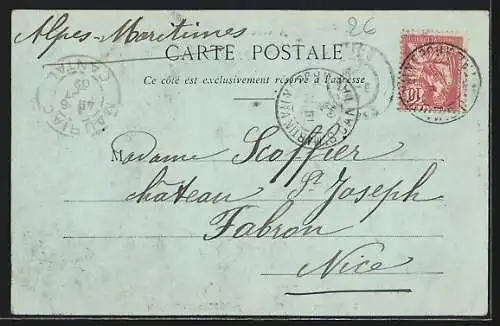 26
Alpes-Maritimes
CARTE POSTALE
Ce côté est exclusivement réservé à l'adresse
Madame Scoffier
château St Joseph
Fabron
Nice
MAURIAC
CANTAL
10